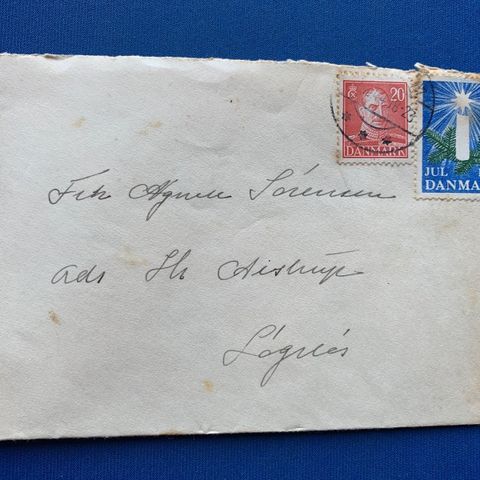 20
DANMARK
JUL 1
DANMA
Frk Agnes Sørensen
ads Hr Aistrup
Løgnæs